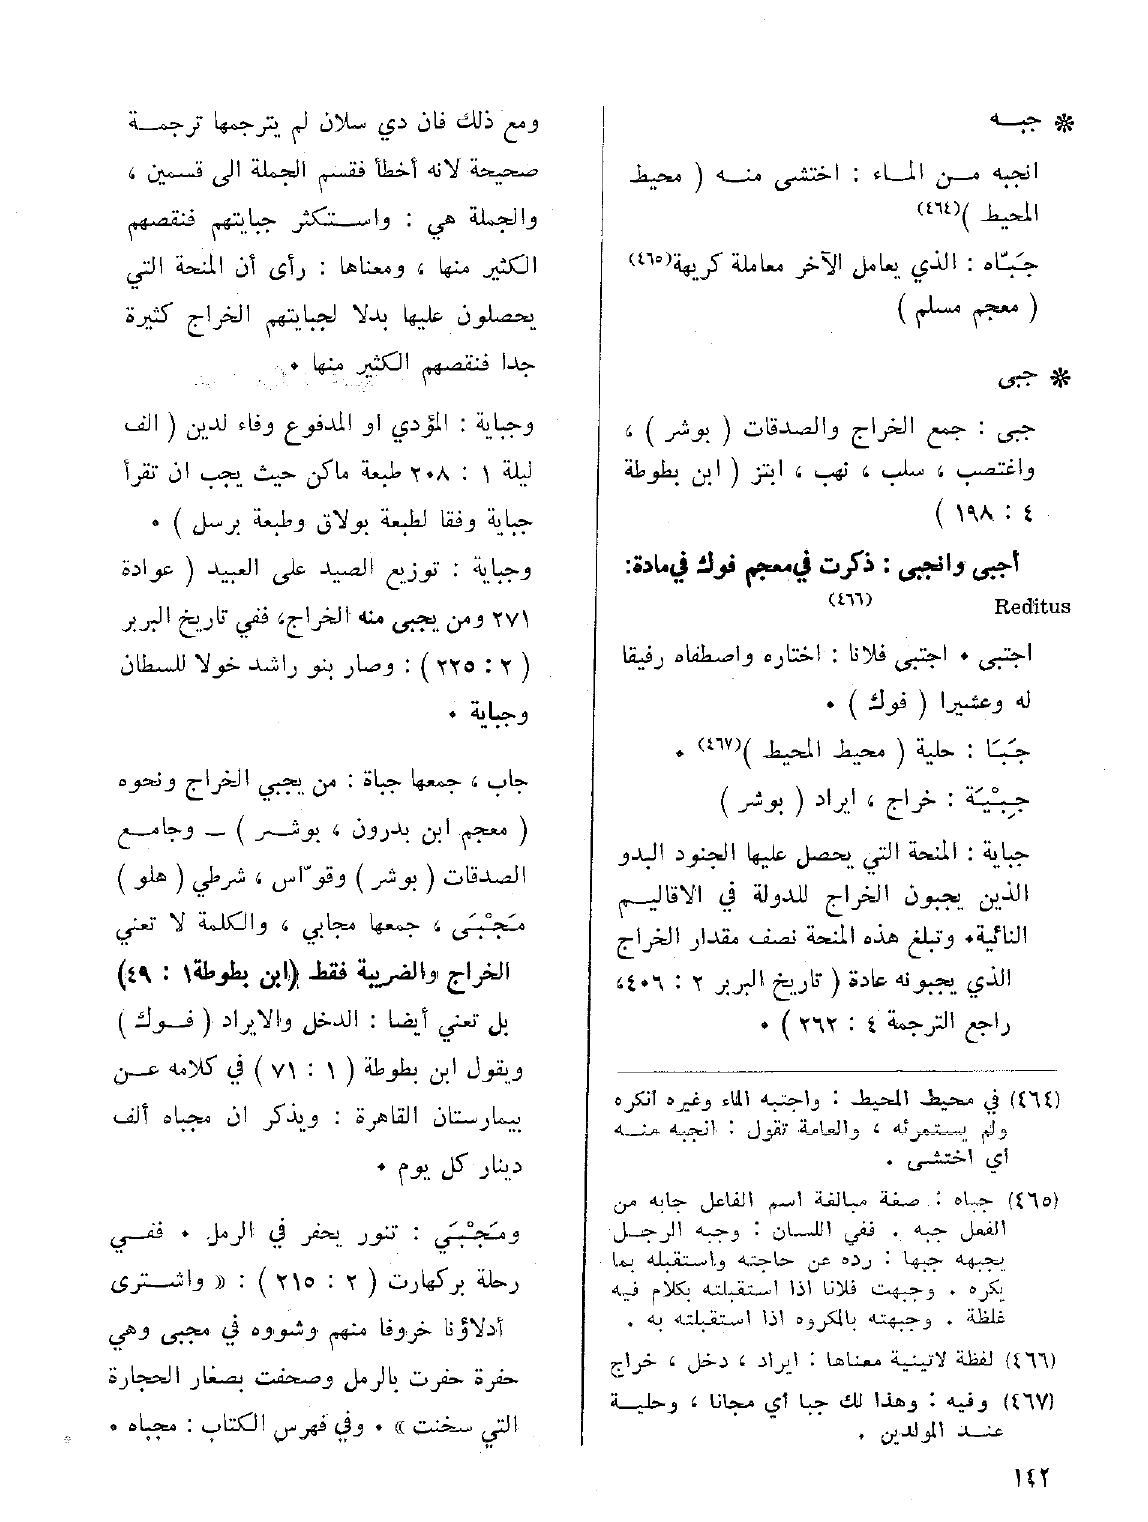 ❊ جبــه
انجبه مــن المــاء : اختشى منــه ( محيط
المحيط )(٤٦٤)
جَبّاه : الذي يعامل الآخر معاملة كريهة(٤٦٥)
( معجم مسلم )
❊ جبى
جبى : جمع الخراج والصدقات ( بوشر ) ،
واغتصب ، سلب ، نهب ، ابتز ( ابن بطوطة
٤ : ١٩٨ )
أجبى وانجبى : ذكرت في معجم فوك في مادة:
Reditus (٤٦٦)
اجتبى ٠ اجتبى فلانا : اختاره واصطفاه رفيقا
له وعشيرا ( فوك ) ٠
جَبَا : حلية ( محيط المحيط )(٤٦٧) ٠
جِبْيَة : خراج ، ايراد ( بوشر )
جباية : المنحة التي يحصل عليها الجنود البدو
الذين يجبون الخراج للدولة في الاقاليــم
النائية٠ وتبلغ هذه المنحة نصف مقدار الخراج
الذي يجبونه عادة ( تاريخ البربر ٢ : ٤٠٦،
راجع الترجمة ٤ : ٢٦٢ ) ٠
(٤٦٤) في محيط المحيط : واجتبه الماء وغيره أنكره
ولم يستمرئه ، والعامة تقول : انجبه منــه
أي اختشى .
(٤٦٥) جباه : صفة مبالغة اسم الفاعل جابه من
الفعل جبه . ففي اللسان : وجبه الرجــل
يجبهه جبها : رده عن حاجته واستقبله بما
يكره . وجبهت فلانا اذا استقبلته بكلام فيه
غلظة . وجبهته بالمكروه اذا استقبلته به .
(٤٦٦) لفظة لاتينية معناها : ايراد ، دخل ، خراج
(٤٦٧) وفيه : وهذا لك جبا أي مجانا ، وحليــة
عنــد المولدين .
١٤٢
ومع ذلك فان دي سلان لم يترجمها ترجمــة
صحيحة لانه أخطأ فقسم الجملة الى قسمين ،
والجملة هي : واســتكثر جبايتهم فنقصهم
الكثير منها ، ومعناها : رأى أن المنحة التي
يحصلون عليها بدلا لجبايتهم الخراج كثيرة
جدا فنقصهم الكثير منها ٠
وجباية : المؤدي او المدفوع وفاء لدين ( الف
ليلة ١ : ٢٠٨ طبعة ماكن حيث يجب ان تقرأ
جباية وفقا لطبعة بولاق وطبعة برسل ) ٠
وجباية : توزيع الصيد على العبيد ( عوادة
٢٧١ ومن يجبى منه الخراج، ففي تاريخ البربر
( ٢ : ٢٢٥ ) : وصار بنو راشد خولا للسطان
وجباية ٠
جاب ، جمعها جباة : من يجبي الخراج ونحوه
( معجم ابن بدرون ، بوشــر ) ــ وجامــع
الصدقات ( بوشر ) وقوّاس ، شرطي ( هلو )
مَجْبَى ، جمعها مجابي ، والكلمة لا تعني
الخراج والضريبة فقط (ابن بطوطة١ : ٤٩)
بل تعني أيضا : الدخل والايراد ( فــوك )
ويقول ابن بطوطة ( ١ : ٧١ ) في كلامه عــن
بيمارستان القاهرة : ويذكر ان مجباه ألف
دينار كل يوم ٠
ومَجْبَي : تنور يحفر في الرمل ٠ ففــي
رحلة بركهارت ( ٢ : ٢١٥ ) : « واشــترى
أدلاؤنا خروفا منهم وشووه في مجبى وهي
حفرة حفرت بالرمل وصحفت بصغار الحجارة
التي سخنت » ٠ وفي فهرس الكتاب : مجباه ٠